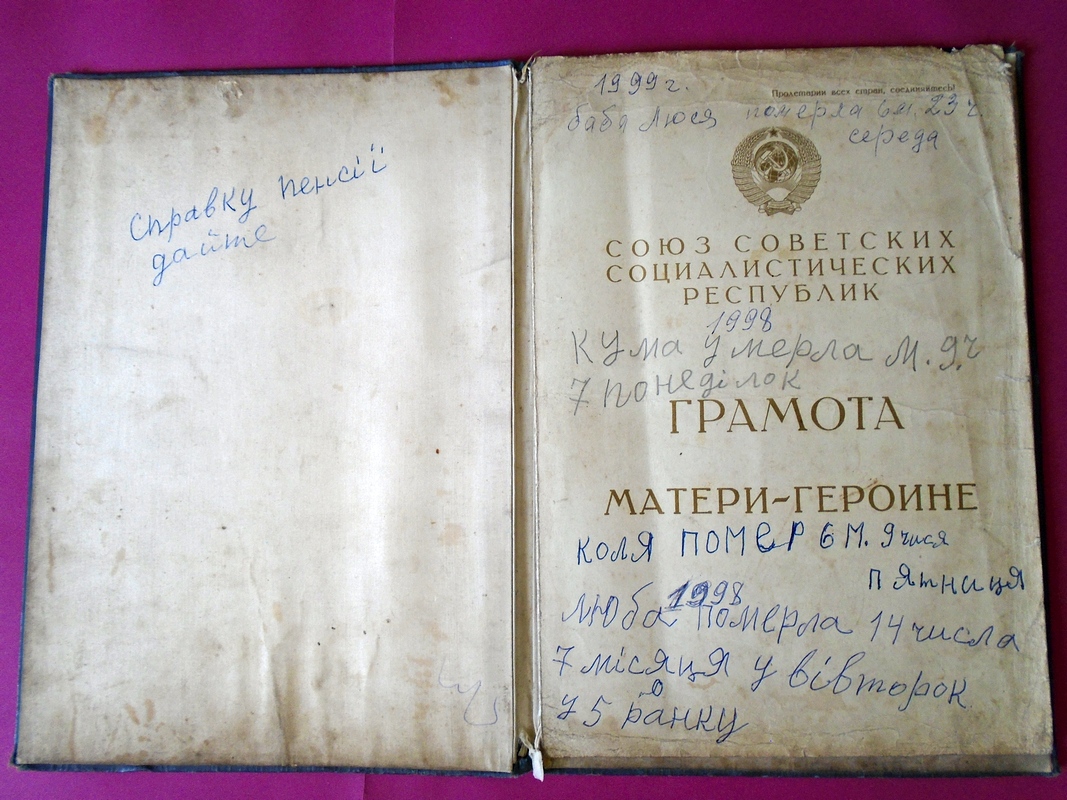 Справку пенсії
дайте
1999 г.
Пролетарии всех стран, соединяйтесь!
баба Люся померла 6м. 23 ч.
середа
СОЮЗ СОВЕТСКИХ
СОЦИАЛИСТИЧЕСКИХ
РЕСПУБЛИК
1998
Кума умерла м. 9.ч
7 понеділок
ГРАМОТА
МАТЕРИ-ГЕРОИНЕ
Коля ПОМЕР 6 М. 9 чися
пятниця
1998
Люба померла 14 числа
7 місяця у вівторок
у 5 ранку